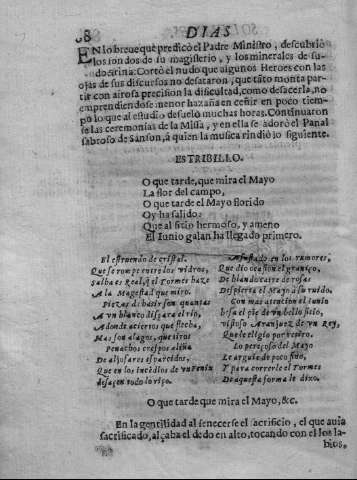 68 DIAS
EN lo breve que predicò el Padre Ministro, descubriò
los fondos de su magisterio, y los minerales de su
doctrina: Cortò el nudo que algunos Heroes con las
ojas de sus discursos no desataron, que tãto monta par-
tir con airosa precision la dificultad, como desacerla, no
emprendiendose menor hazaña en ceñir en poco tiem-
po lo que al estudio desvelò muchas horas. Continuaron
se las ceremonias de la Misa, y en ella se adorò el Panal
sabroso de Sanson, à quien la musica rindiò lo siguiente.
ESTRIBILLO.
O que tarde, que mira el Mayo
La flor del campo,
O que tarde el Mayo florido
Oy ha salido:
Que al sitio hermoso, y ameno
El Iunio galan ha llegado primero.
El estruendo de cristal.
Que se rompe entre los vidros,
Salba es Real, q̃ el Tormes haze
A la Magestad que miro.
Piezas dibasir son quantas
A vn blanco dispara el rio,
Adonde aciertos que flecha,
Mas son alagos, que tiros
Penachos crespos aliña
De aljofares esparcidos,
Que en los incẽdios de vn Fenix
desaçen todo lo riço.
Asustado en los rumores,
Que dio ocasion el graniço,
De blando catre de rosas
Despierta el Mayo a su ruido.
Con mas atencion el Iunio
besa el pie de vn bello sitio,
vistoso Aranjuez de vn Rey,
Que le eligio por retiro.
Lo pereçoso del Mayo
Le arguie de poco fino,
Y para correrle el Tormes
De aquesta forma le dixo.
O que tarde que mira el Mayo, &c.
En la gentilidad al fenecerse el sacrificio, el que avia
sacrificado, alçaba el dedo en alto, tocando con el los la-
bios,